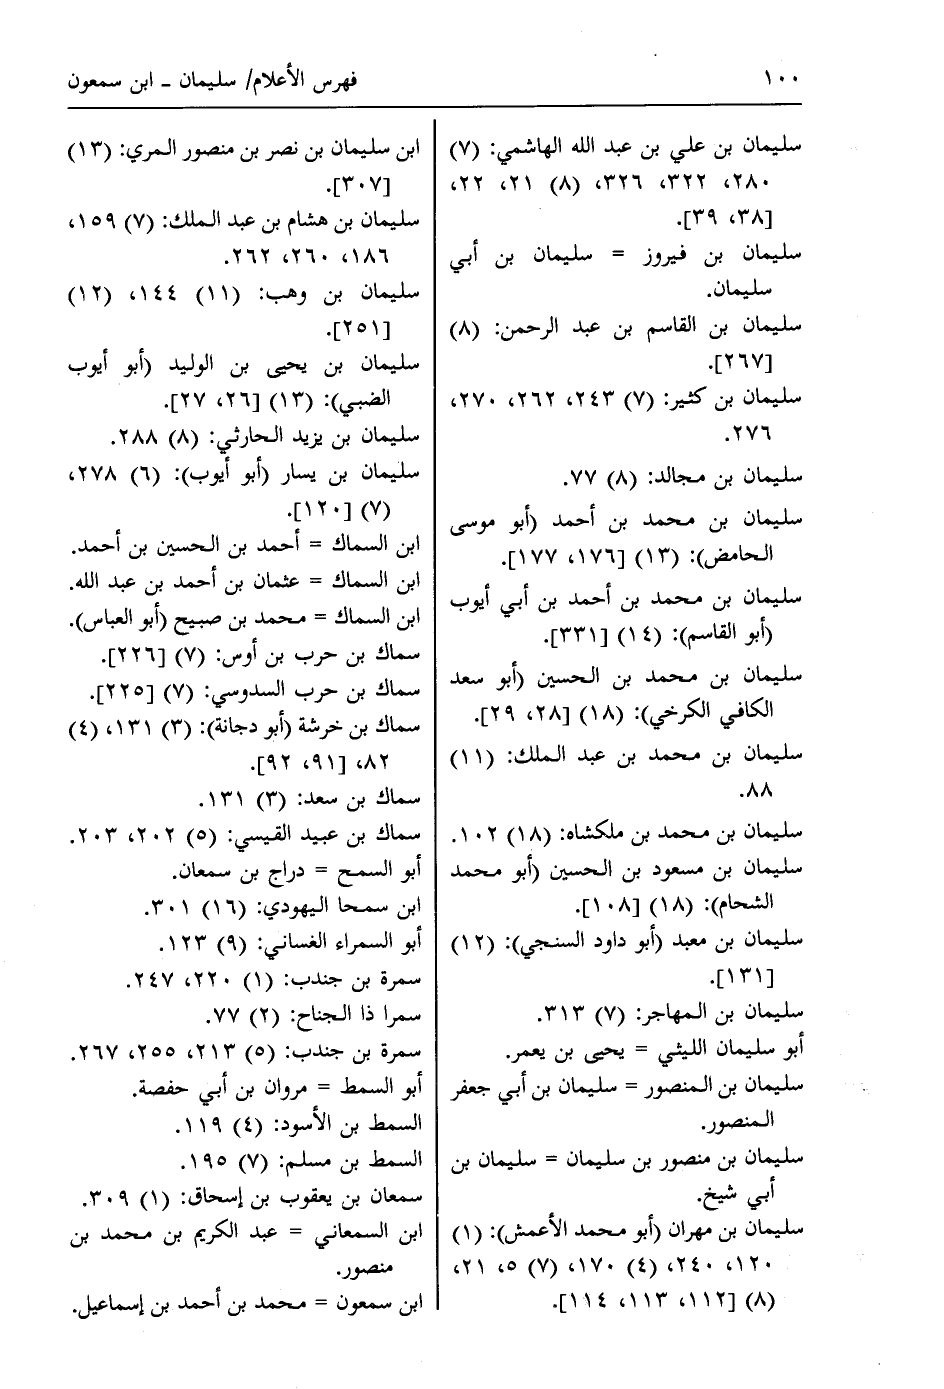 ١٠٠
فهرس الأعلام/ سليمان ـ ابن سمعون
سليمان بن علي بن عبد الله الهاشمي: (٧)
٢٨٠، ٣٢٢، ٣٢٦، (٨) ٢١، ٢٢،
[٣٨، ٣٩].
سليمان بن فيروز = سليمان بن أبي
سليمان.
سليمان بن القاسم بن عبد الرحمن: (٨)
[٢٦٧].
سليمان بن كثير: (٧) ٢٤٣، ٢٦٢، ٢٧٠،
٢٧٦.
سليمان بن مجالد: (٨) ٧٧.
سليمان بن محمد بن أحمد (أبو موسى
الحامض): (١٣) [١٧٦، ١٧٧].
سليمان بن محمد بن أحمد بن أبي أيوب
(أبو القاسم): (١٤) [٣٣١].
سليمان بن محمد بن الحسين (أبو سعد
الكافي الكرخي): (١٨) [٢٨، ٢٩].
سليمان بن محمد بن عبد الملك: (١١)
٨٨.
سليمان بن محمد بن ملكشاه: (١٨) ١٠٢.
سليمان بن مسعود بن الحسين (أبو محمد
الشحام): (١٨) [١٠٨].
سليمان بن معبد (أبو داود السنجي): (١٢)
[١٣١].
سليمان بن المهاجر: (٧) ٣١٣.
أبو سليمان الليثي = يحيى بن يعمر.
سليمان بن المنصور = سليمان بن أبي جعفر
المنصور.
سليمان بن منصور بن سليمان = سليمان بن
أبي شيخ.
سليمان بن مهران (أبو محمد الأعمش): (١)
١٢٠، ٢٤٠، (٤) ١٧٠، (٧) ٥، ٢١،
(٨) [١١٢، ١١٣، ١١٤].
ابن سليمان بن نصر بن منصور المري: (١٣)
[٣٠٧].
سليمان بن هشام بن عبد الملك: (٧) ١٥٩،
١٨٦، ٢٦٠، ٢٦٢.
سليمان بن وهب: (١١) ١٤٤، (١٢)
[٢٥١].
سليمان بن يحيى بن الوليد (أبو أيوب
الضبي): (١٣) [٢٦، ٢٧].
سليمان بن يزيد الحارثي: (٨) ٢٨٨.
سليمان بن يسار (أبو أيوب): (٦) ٢٧٨،
(٧) [١٢٠].
ابن السماك = أحمد بن الحسين بن أحمد.
ابن السماك = عثمان بن أحمد بن عبد الله.
ابن السماك = محمد بن صبيح (أبو العباس).
سماك بن حرب بن أوس: (٧) [٢٢٦].
سماك بن حرب السدوسي: (٧) [٢٢٥].
سماك بن خرشة (أبو دجانة): (٣) ١٣١، (٤)
٨٢، [٩١، ٩٢].
سماك بن سعد: (٣) ١٣١.
سماك بن عبيد القيسي: (٥) ٢٠٢، ٢٠٣.
أبو السمح = دراج بن سمعان.
ابن سمحا اليهودي: (١٦) ٣٠١.
أبو السمراء الغساني: (٩) ١٢٣.
سمرة بن جندب: (١) ٢٢٠، ٢٤٧.
سمرا ذا الجناح: (٢) ٧٧.
سمرة بن جندب: (٥) ٢١٣، ٢٥٥، ٢٦٧.
أبو السمط = مروان بن أبي حفصة.
السمط بن الأسود: (٤) ١١٩.
السمط بن مسلم: (٧) ١٩٥.
سمعان بن يعقوب بن إسحاق: (١) ٣٠٩.
ابن السمعاني = عبد الكريم بن محمد بن
منصور.
ابن سمعون = محمد بن أحمد بن إسماعيل.